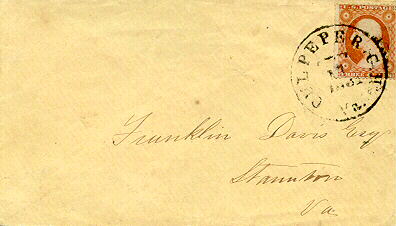 U.S. POSTAGE
CULPEPER C.H.
Va.
THREE
Franklin Davis Esq
Staunton
Va